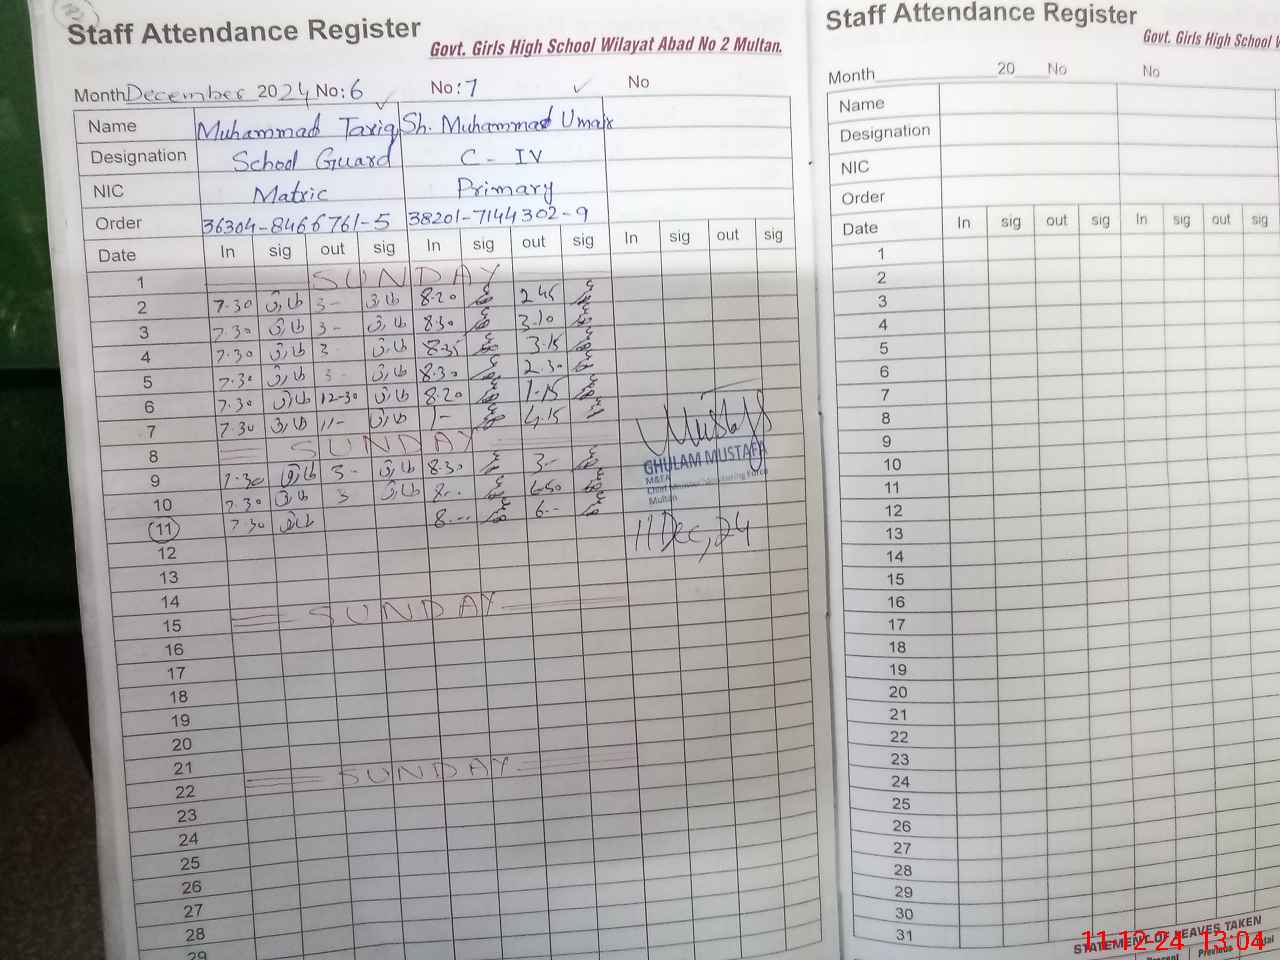 Staff Attendance Register
Govt. Girls High School Wilayat Abad No 2 Multan.
Month December 2024 No: 6 No: 7 No
Name Muhammad Tariq Sh. Muhammad Umar
Designation School Guard C - IV
NIC Matric Primary
Order 36304-8466761-5 38201-7144302-9
Date In sig out sig In sig out sig In sig out sig
1 SUNDAY
2 7.30 3- 8.20 2.45
3 7.30 3- 8.30 3.10
4 7.30 3- 8.35 3.15
5 7.30 3- 8.30 2.30
6 7.30 12-30 8.20 1.15
7 7.30 11- 1- 4.15
8 SUNDAY
9 7.30 3- 8.30 3-
10 7.30 3 8..
11 7.30 8... 6..
12
13
14
15 SUNDAY
16
17
18
19
20
21
22 SUNDAY
23
24
25
26
27
28
29
Mustafa
GHULAM MUSTAFA
M&EA
Chief Minister Monitoring Force
Multan
11 Dec, 24
Staff Attendance Register
Govt. Girls High School W
Month 20 No No
Name
Designation
NIC
Order
Date In sig out sig In sig out sig
1
2
3
4
5
6
7
8
9
10
11
12
13
14
15
16
17
18
19
20
21
22
23
24
25
26
27
28
29
30
31
STATEMENT OF LEAVES TAKEN
Present Previous
11-12-24 13:04